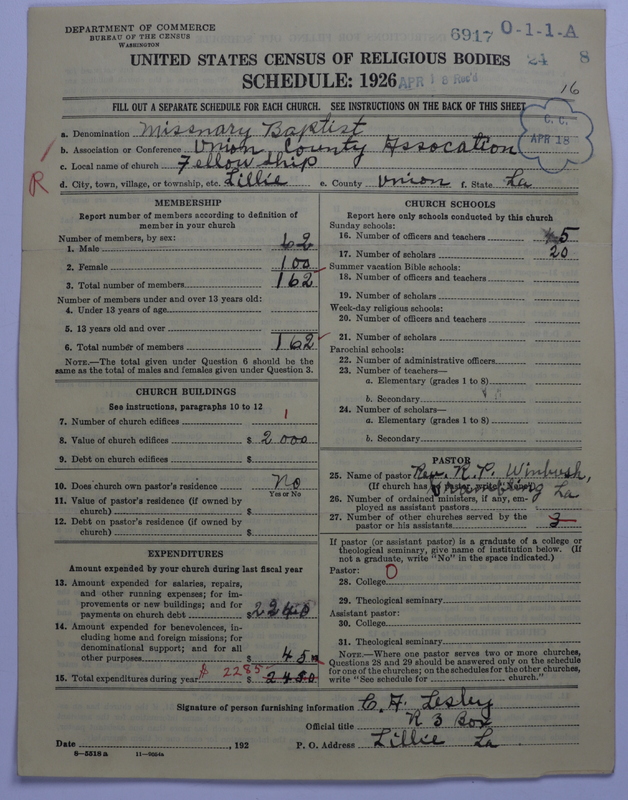 DEPARTMENT OF COMMERCE
BUREAU OF THE CENSUS
WASHINGTON
6917 0-1-1-A
24 8
UNITED STATES CENSUS OF RELIGIOUS BODIES
SCHEDULE: 1926
APR 18 Rec'd
16
FILL OUT A SEPARATE SCHEDULE FOR EACH CHURCH. SEE INSTRUCTIONS ON THE BACK OF THIS SHEET
C. C.
APR 18
a. Denomination Missnary Baptist
b. Association or Conference Union County Assocation
c. Local name of church Fellowship
R
d. City, town, village, or township, etc. Lillie e. County Union f. State La
MEMBERSHIP
Report number of members according to definition of member in your church
Number of members, by sex:
1. Male 62
2. Female 100
3. Total number of members 162
Number of members under and over 13 years old:
4. Under 13 years of age
5. 13 years old and over
6. Total number of members 162
NOTE.—The total given under Question 6 should be the
same as the total of males and females given under Question 3.
CHURCH BUILDINGS
See instructions, paragraphs 10 to 12
7. Number of church edifices 1
8. Value of church edifices $ 2000
9. Debt on church edifices $
10. Does church own pastor's residence No
Yes or No
11. Value of pastor's residence (if owned by
church) $
12. Debt on pastor's residence (if owned by
church) $
EXPENDITURES
Amount expended by your church during last fiscal year
13. Amount expended for salaries, repairs,
and other running expenses; for im-
provements or new buildings; and for
payments on church debt $ 2240
14. Amount expended for benevolences, in-
cluding home and foreign missions; for
denominational support; and for all
other purposes $ 45
15. Total expenditures during year $ 2285 $
CHURCH SCHOOLS
Report here only schools conducted by this church
Sunday schools:
16. Number of officers and teachers 5
17. Number of scholars 20
Summer vacation Bible schools:
18. Number of officers and teachers
19. Number of scholars
Week-day religious schools:
20. Number of officers and teachers
21. Number of scholars
Parochial schools:
22. Number of administrative officers
23. Number of teachers—
a. Elementary (grades 1 to 8)
b. Secondary
24. Number of scholars—
a. Elementary (grades 1 to 8)
b. Secondary
PASTOR
25. Name of pastor Rev. R. P. Winbush,
(If church has no pastor, write "None") La
26. Number of ordained ministers, if any, em-
ployed as assistant pastors
27. Number of other churches served by the
pastor or his assistants 3
If pastor (or assistant pastor) is a graduate of a college or
theological seminary, give name of institution below. (If
not a graduate, write "No" in the space indicated.)
Pastor:
28. College 0
29. Theological seminary
Assistant pastor:
30. College
31. Theological seminary
NOTE.—Where one pastor serves two or more churches,
Questions 28 and 29 should be answered only on the schedule
for one of the churches; on the schedules for the other churches,
write "See schedule for church."
Signature of person furnishing information C. F. Lesley
Official title R 3 Box
Date , 192 P. O. Address Lillie La
8—5518 a 11—9034a